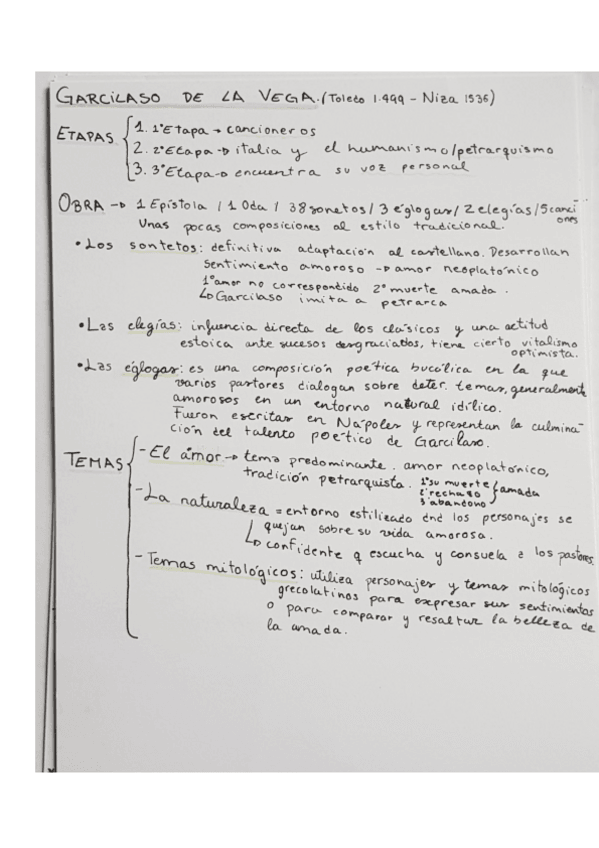 GARCILASO DE LA VEGA. (Toledo 1.499 - Niza 1536)
ETAPAS
1. 1ªEtapa → cancioneros
2. 2ªEtapa → italia y el humanismo/petrarquismo
3. 3ªEtapa → encuentra su voz personal
OBRA → 1 Epístola / 1 Oda / 38 sonetos / 3 églogas / 2 elegías / 5 canci
ones
Unas pocas composiciones al estilo tradicional.
• Los sontetos: definitiva adaptación al castellano. Desarrollan
sentimiento amoroso → amor neoplatónico
1º amor no correspondido 2º muerte amada.
↳ Garcilaso imita a petrarca
• Las elegías: influencia directa de los clásicos y una actitud
estoica ante sucesos desgraciados, tiene cierto vitalismo
optimista.
• Las églogas: es una composición poética bucólica en la que
varios pastores dialogan sobre deter. temas, generalmente
amorosos en un entorno natural idílico.
Fueron escritas en Nápoles y representan la culmina-
ción del talento poético de Garcilaso.
TEMAS
- El amor → tema predominante. amor neoplatónico,
tradición petrarquista. 1º su muerte
2º rechazo
3º abandono
amada
- La naturaleza = entorno estilizado dnd los personajes se
quejan sobre su vida amorosa.
↳ confidente q escucha y consuela a los pastores.
- Temas mitológicos: utiliza personajes y temas mitológicos
grecolatinos para expresar sus sentimientos
o para comparar y resaltar la belleza de
la amada.